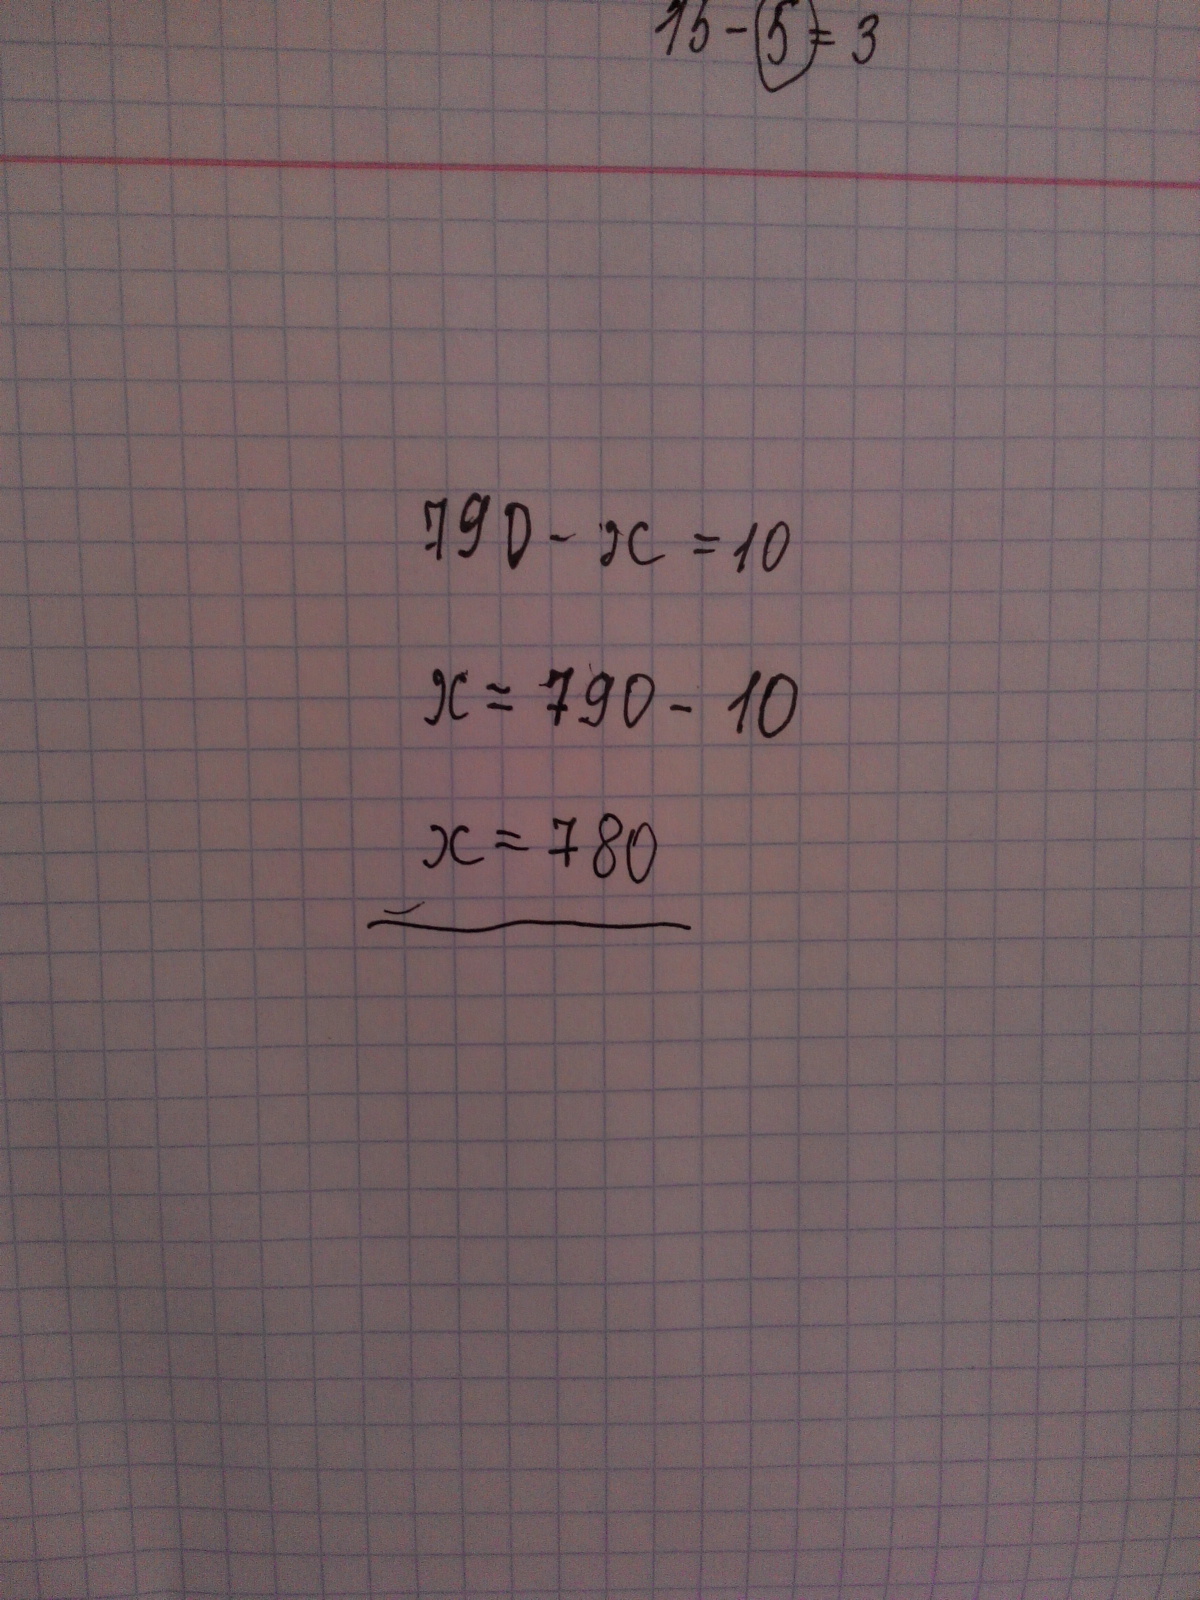 15 - 5 = 3
790 - x = 10
x = 790 - 10
x = 780